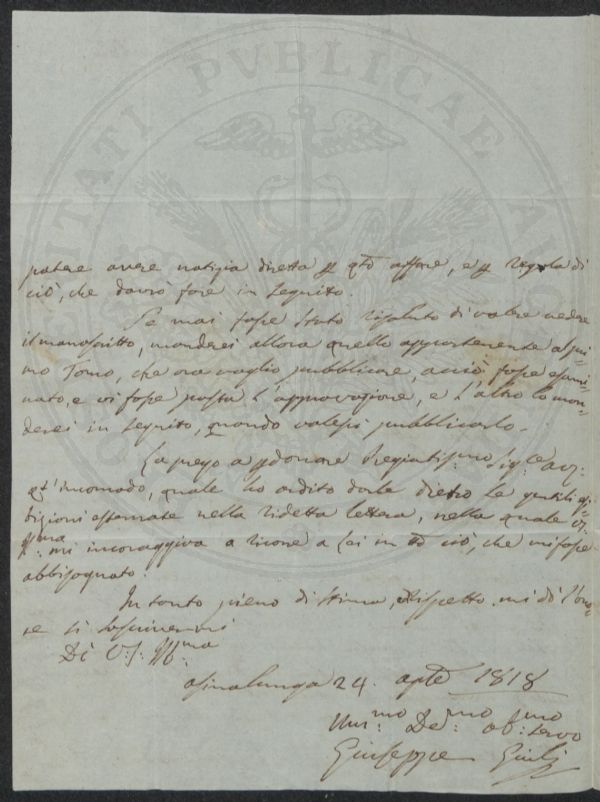 VTILITATI PVBLICAE AVGE
potere avere notizia diretta p qto affare, e p regola di
ciò, che dovrò fare in seguito.
Se mai fosse stato risoluto di volere vedere
il manoscritto, manderei allora quello appartenente al pri-
mo Tomo, che ora voglio pubblicare, acciò fosse esami-
nato, e vi fosse posta l'approvazione, e l'altro lo man-
derei in seguito, quando volessi pubblicarlo.
La prego a pdonare Pregiatissmo Sigre
qt'incomodo, quale ho ardito darle dietro le gentili es-
bizioni esternate nella ridetta lettera, nella quale V.S.
Illma mi incoraggiva a ricorre a Lei in tto ciò, che mi fosse
abbisognato.
Intanto pieno di stima, e rispetto mi dò l'ono-
re di soscrivermi
Di V.S. Illma
Asinalunga 24. aple 1818
Umi:mo Dev:mo Obb:mo servo
Giuseppe Giulj